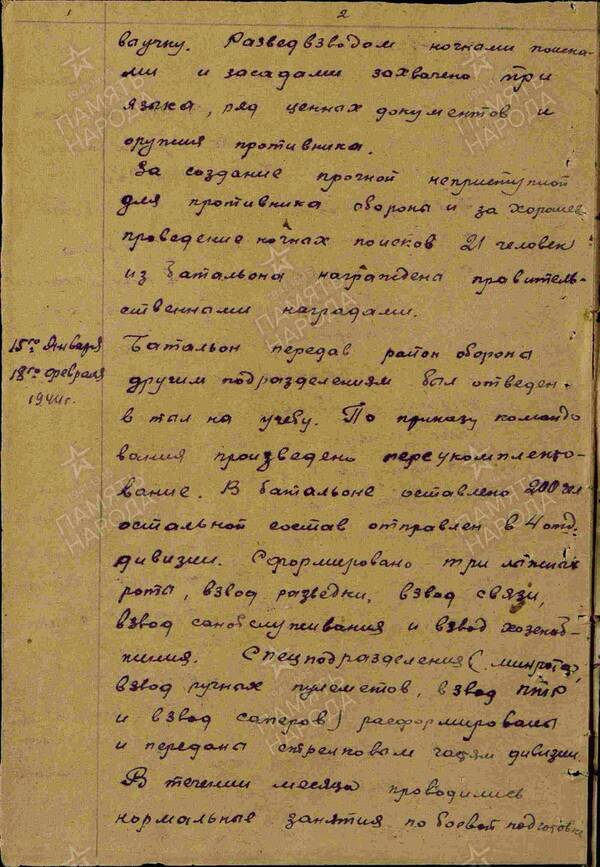 1 2
ваучку. Разведвзводом ночными поиска-
ми и засадами захвачено три
языка, ряд ценных документов и
оружия противника.
За создание прочной неприступной
для противника обороны и за хорошее
проведение ночных поисков 21 человек
из батальона награждена правитель-
ственными наградами.
15го января
18го февраля
1944г.
Батальон передав район обороны
другим подразделениям был отведен
в тыл на учебу. По приказу командо
вания произведено переукомплекто-
вание. В батальоне оставлено 200 чел
остальной состав отправлен в 4 отд.
дивизии. Сформировано три лыжных
роты, взвод разведки, взвод связи,
взвод санобслуживания и взвод хозснаб-
жения. Спецподразделения (минрота,
взвод ручных пулеметов, взвод ПТР
и взвод саперов) расформированы
и переданы стрелковым частям дивизии.
В течении месяца проводились
нормальные занятия по боевой подготовке
ПАМЯТЬ НАРОДА
ПАМЯТЬ НАРОДА
ПАМЯТЬ НАРОДА
ПАМЯТЬ НАРОДА
ПАМЯТЬ НАРОДА
ПАМЯТЬ НАРОДА
ПАМЯТЬ НАРОДА
ПАМЯТЬ НАРОДА